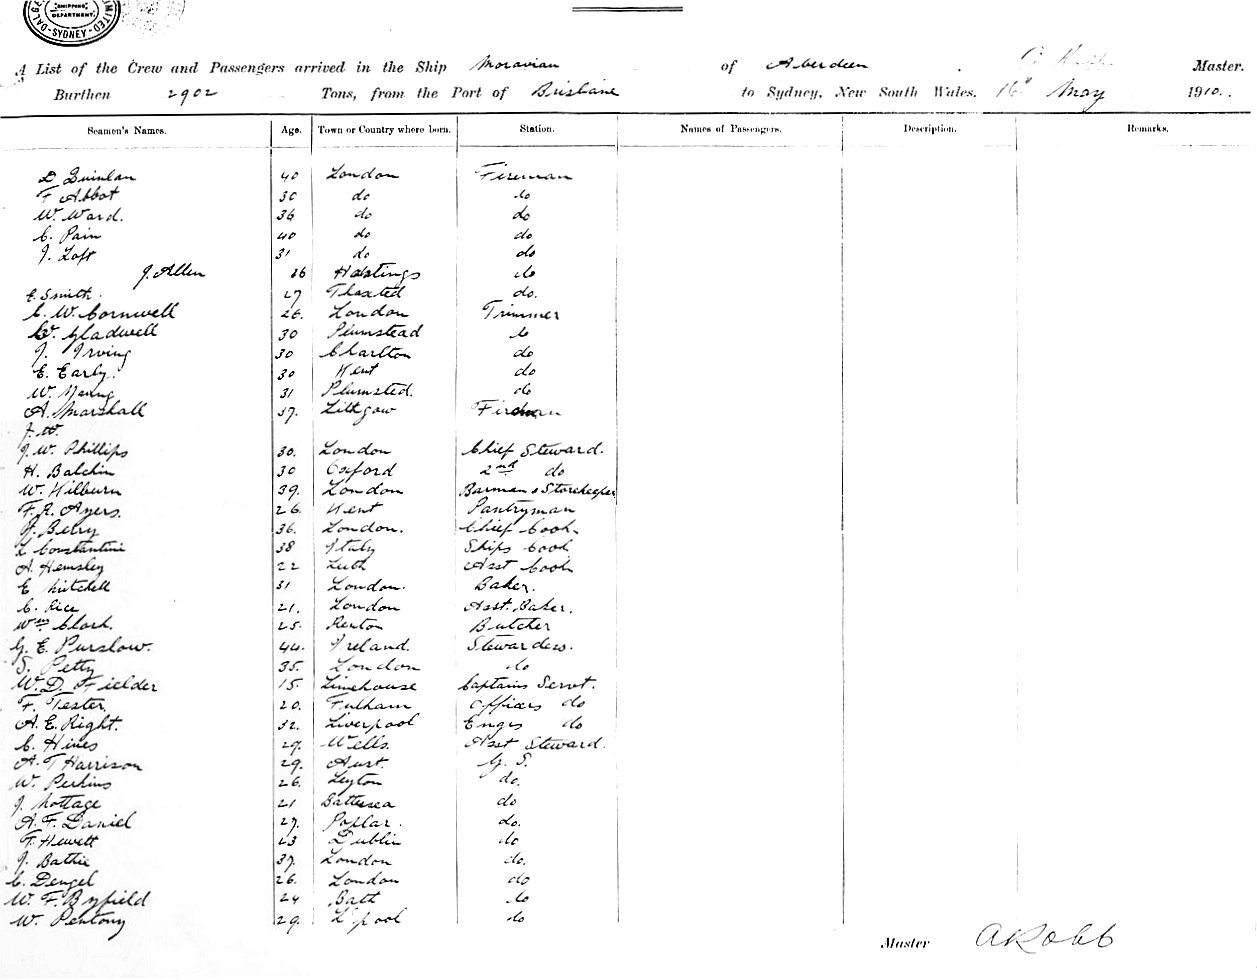 SHIPPING
DEPARTMENT.
SYDNEY
A List of the Crew and Passengers arrived in the Ship Moravian of Aberdeen Master.
Burthen 2902 Tons, from the Port of Brisbane to Sydney, New South Wales. 16th May 1910.
Seamen's Names. Age. Town or Country where born. Station. Names of Passengers. Description. Remarks.
D Quinlan 40 London Fireman
F Abbot 30 do do
W. Ward. 36 do do
C. Pain 40 do do
J. Loft 31 do do
J. Allen 36 Hastings do
E. Smith. 27 Thaxted do.
C. W. Cornwell 26. London Trimmer
W. Gladwell 30 Plumstead do
J. Irving 30 Charlton do
E. Early. 30 Kent do
W. 31 Plumsted. do
A. Marshall 37. Lithgow Fireman
J. W.
J. W. Phillips 30. London Chief Steward.
H. Balchin 30 Oxford 2nd do
W. Hilburn 39. London Barman & Storekeeper
F. R. Ayers. 26. Kent Pantryman
Berry 36. London. Chief Cook
L Constantini 38 Italy Ships Cook
A. Hemsley 22 Asst Cook
E Mitchell 31 London. Baker.
C. Rice 21. London Asst. Baker.
Wm Clark. 25. Renton Butcher
G. E. Purslow. 44. Ireland. Stewardess.
S. Petty 35. London do
W. D. Fielder 15. Limehouse Captains Servt.
F. Tester 20. Fulham Officers do
A. E. Right. 32. Liverpool Engrs do
C. Hines 29. Wells. Asst Steward.
A. T Harrison 29. Aust. G. S.
W. Perkins 26. Leyton do.
J. Nottage 21 Battersea do
A. F. Daniel 27. Poplar. do.
F. Hewett 23 Dublin do
J. Bathie 37. London do.
C. Dengel 26. London do
W. F. Byfield 24 Bath do
W. Pentony 29. L'pool do
Master A Robb